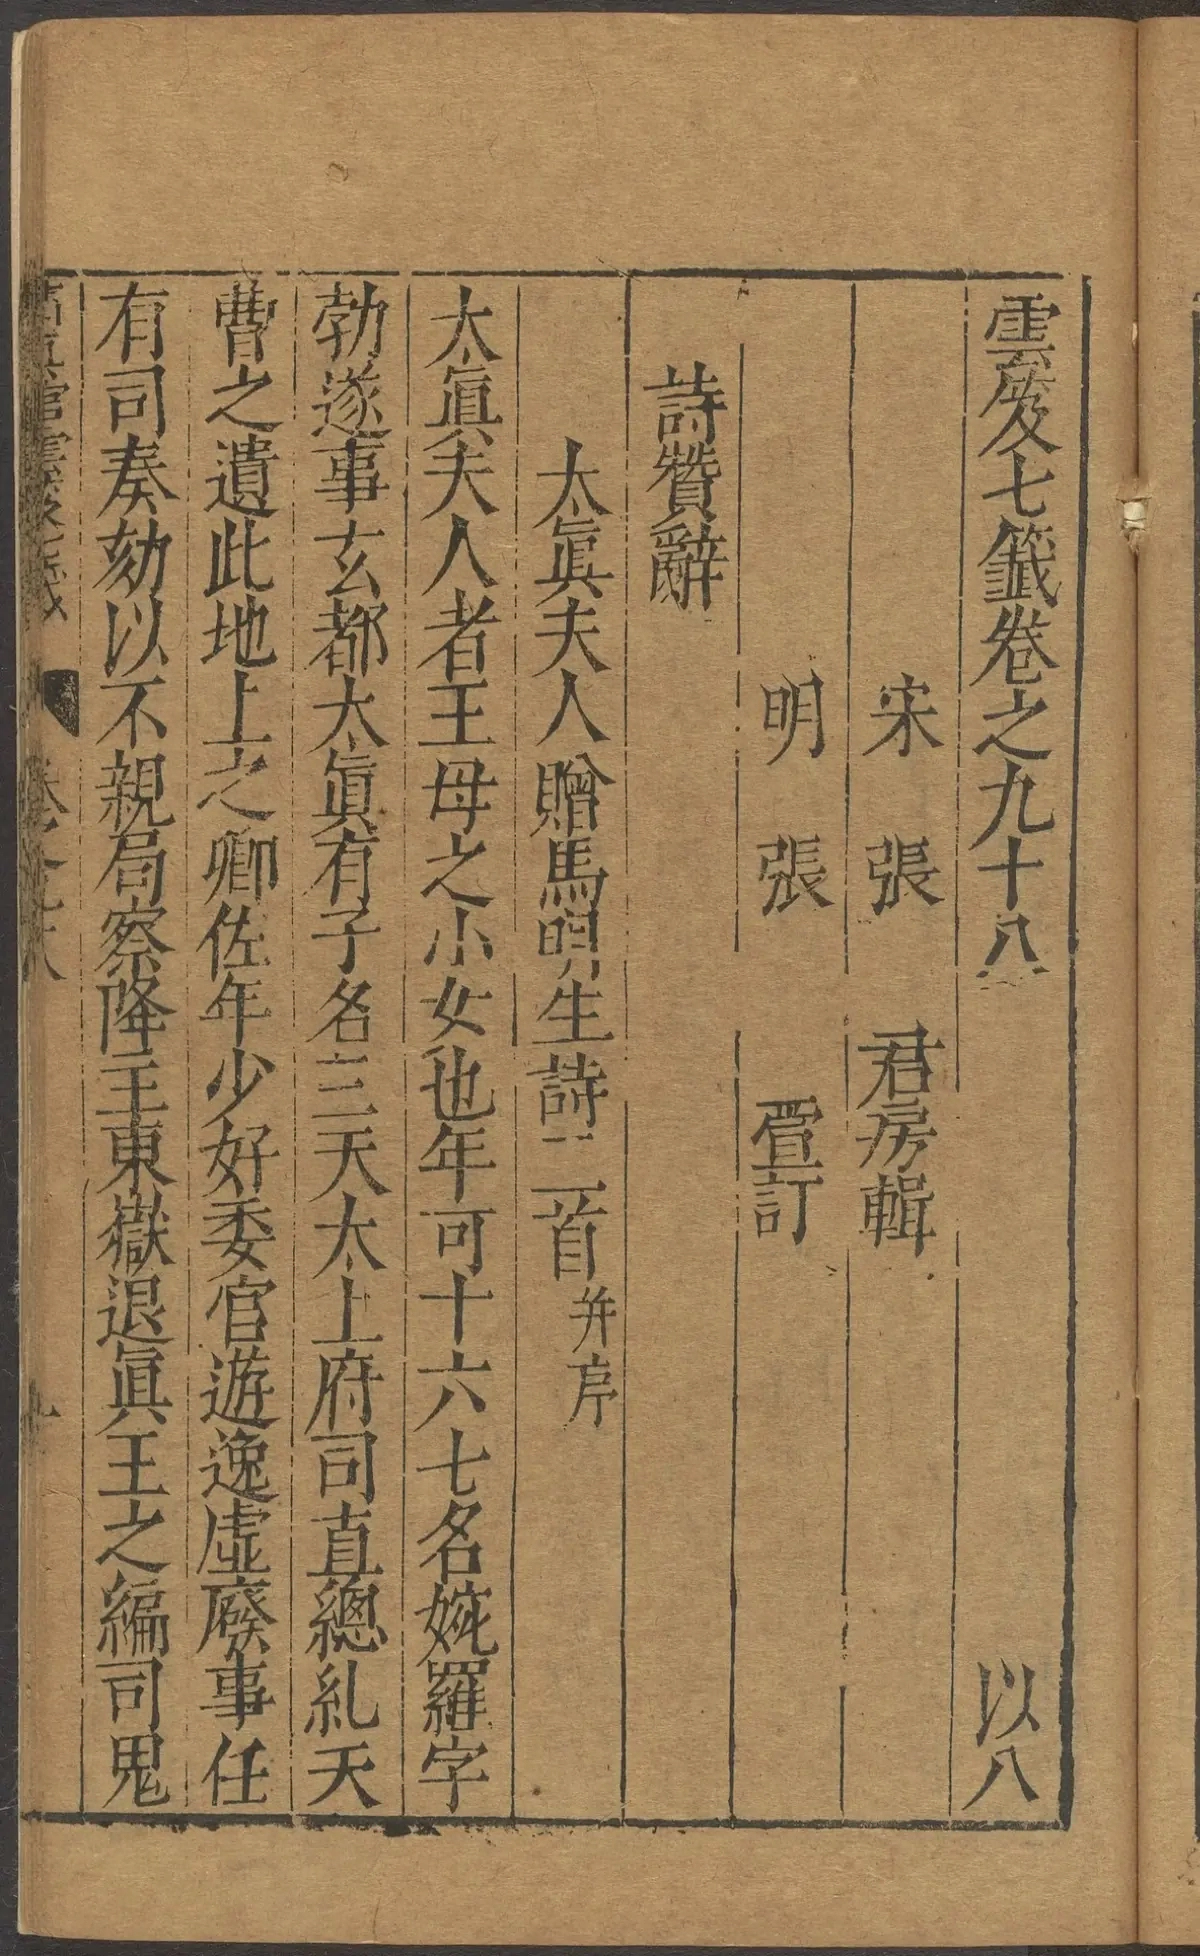 雲笈七籤卷之九十八　以八
宋張君房輯
明張萱訂
詩贊辭
太眞夫人贈馬明生詩二首并序
太眞夫人者王母之小女也年可十六七名婉羅字
勃遂事玄都太眞有子名三天太上府司直總糺天
曹之遺此地上之卿佐年少好委官遊逸虛廢事任
有司奏劾以不親局察降主東嶽退眞王之編司鬼
卷之九十八